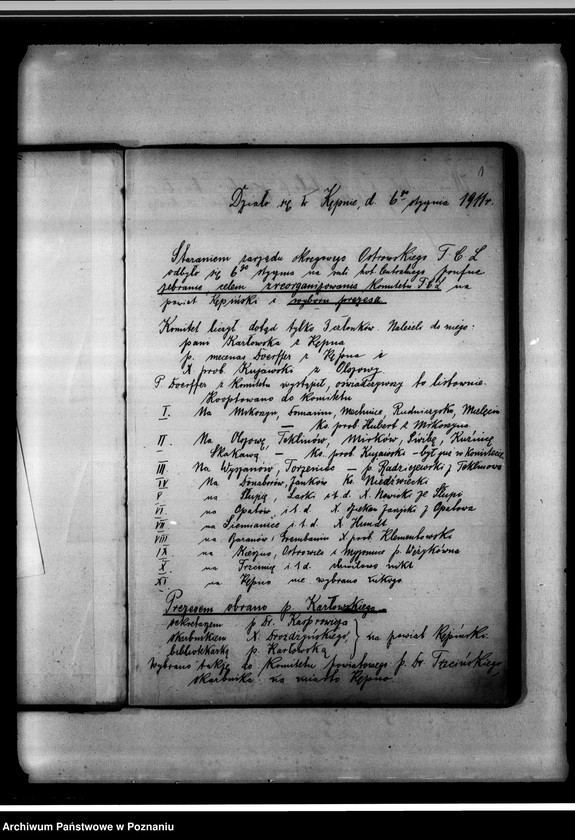 1
Działo się w Kępnie, d. 6go stycznia 1911r.
Staraniem zarządu okręgowego Ostrowskiego T. C. L
odbyło się 6go stycznia na sali hot. Centralnego poufne
zebranie celem zreorganizowania komitetu TCL na
powiat Kępiński i wyboru prezesa.
Komitet liczył dotąd tylko 3 członków. Należeli do niego:
pani Karłowska z Kępna
p. mecenas Doerffer z Kępna i
X prob Kujawski z Olszowy.
P Doerffer z komitetu wystąpił, oświadczywszy to listownie.
Kooptowano do komitetu
I. Na Mikorzyn, Domanin, Mechnice, Rudniczysko,
— ks. prob Hubert z Mikorzyna
II. Na Olszowę, Teklinów, Mirków, Kuźnicę
Skakawą, — ks. prob Kujawski - był już w komitecie
III. Na Wyszanów, Torzeniec — p. Radziszewski z Teklinowa
IV Na Donaborów, Janków ks. Niedźwiecki
V na Słupię, Laski i t. d. X. Nowicki ze Słupi
VI. na Opatów, i t. d. X. dziekan z Opatowa
VII na Siemianice i. t. d. X. Hundt
VIII na Baranów, Grembanin X. prob Klementowski
IX na Kierzno, Ostrowiec i Myjomice p. Wężykówna
X na Trzcinicę i. t. d. chwilowo nikt
XI na Kępno nie wybrano nikogo
Prezesem obrano p. Karłowskiego
sekretarzem p Dr. Kasprowicza
skarbnikiem X. Drożdżyńskiego } na powiat Kępiński.
bibliotekarką p. Karłowską
Wybrano także do komitetu powiatowego p. Dr. Trzcińskiego,
skarbnika na miasto Kępno
Archiwum Państwowe w Poznaniu